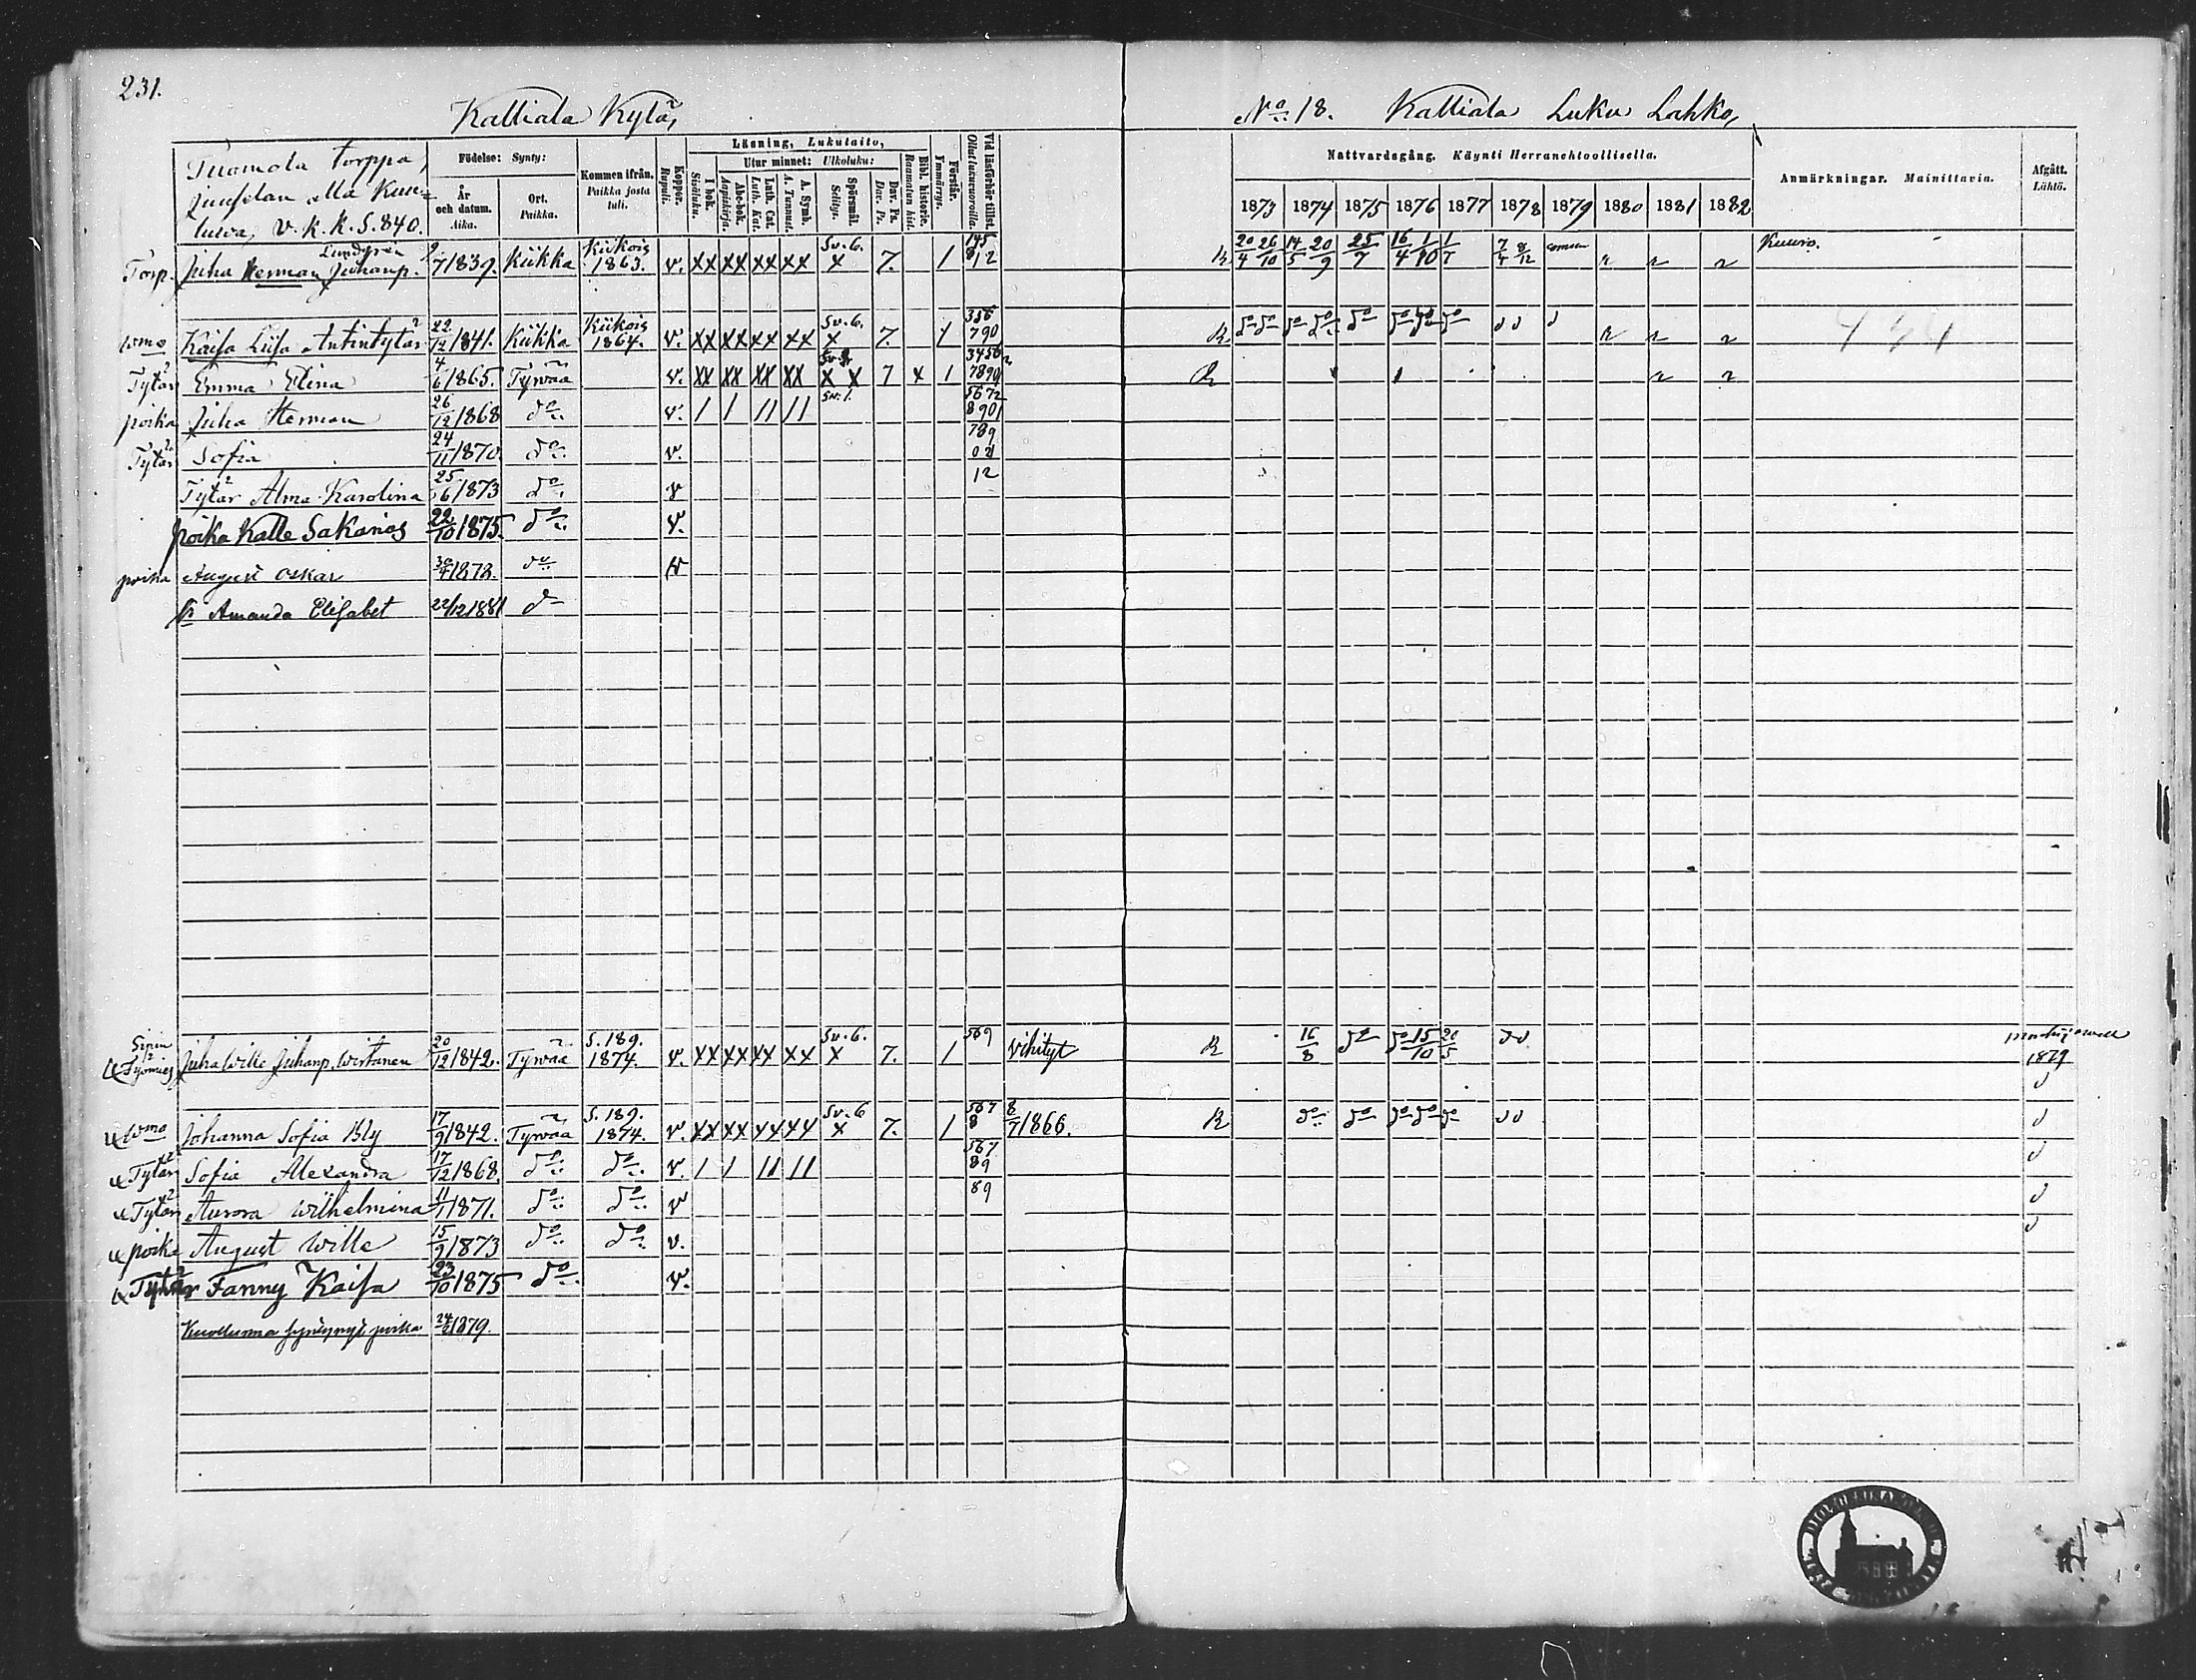 231.
Kalliala Kylä,
No. 18. Kalliala Luku Lahko,
Tuomola torppa,
Junselan alla Kuu=
luva, V. K. K. S. 840.
Födelse: Synty:
År och datum. Aika.
Ort. Paikka.
Kommen ifrån. Paikka josta tuli.
Koppor. Rupuli.
Läsning, Lukutaito,
I bok. Sisäluku.
Utur minnet: Ulkoluku:
Abc-bok. Aapiskirja.
Luth. Cat. Luth. Kat.
A. Symb. A. Tunnust.
Spörsmål. Selitys.
Dav. Ps. Dav. Ps.
Bibl. historie. Raamatun hist.
Förstår. Ymmärrys.
Vid läsförhör tillst. Ollut lukuvuoroilla.
Nattvardsgång. Käynti Herranehtoollisella.
1873 1874 1875 1876 1877 1878 1879 1880 1881 1882
Anmärkningar. Mainittavia.
Afgått. Lähtö.
Torp. Juha Herman Juhanp. Lundgrén 9/7 1839. Kiikka Kiikois 1863. v. XX XX XX XX Sv. 6. X 7. 1 145 812 R 20/4 26/10 14/5 20/9 25/7 16/4 1/10 1/7 7/4 8/12 Kuuro.
wmo Kaisa Liisa Antintytär 22/12 1841. Kiikka Kiikois 1864. v. XX XX XX XX Sv. 6. X 7. 1 356 790 R do do do do do do do do
Tytär Emma Elina 4/6 1865. Tyrvää v. XX XX XX XX X X 7 X 1 3456 7890 R
poika Juha Herman 26/12 1868 do v. / / // // Sv. 1. 5672 8901
Tytär Sofia 24/11 1870 do v. 789 01
Tytär Alma Karolina 25/6 1873 do v 12
poika Kalle Sakarias 22/10 1875. do v.
poika August Oskar 30/4 1878. do v
Amanda Elisabet 22/12 1881 do
Työmies Juha Wille Juhanp. Wirtanen 20/12 1842. Tyrvää S. 189. 1874. v. XX XX XX XX Sv. 6. X 7. 1 569 vihityt R 16/8 do do 15/10 20/5 1879
wmo Johanna Sofia Bly 17/9 1842. Tyrvää S. 189. 1874. v. XX XX XX XX Sv. 6 X 7. 1 567 8 8/7 1866. R do do do do do
Tytär Sofia Alexandra 17/12 1868. do do v. / / // // 567 89
Tytär Aurora Wilhelmina 11/1 1871. do do v 89
poika August Wille 15/9 1873 do do v.
Tytär Fanny Kaisa 23/10 1875 do v.
Kuolluna syntynyt poika 1879.